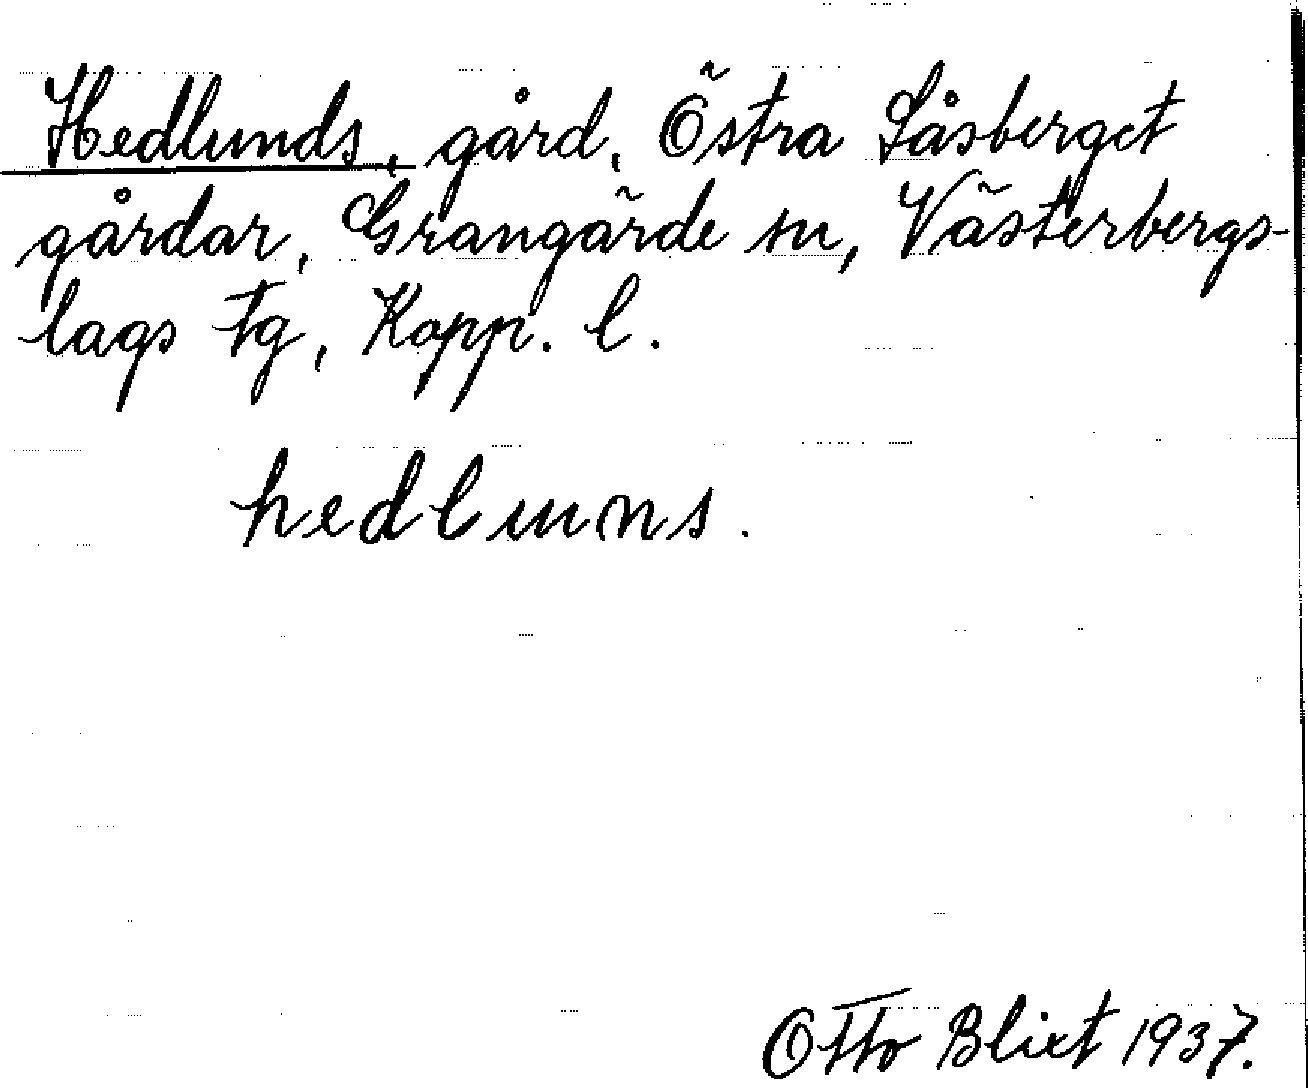 Hedlunds, gård, Östra Såsberget
gårdar, Grangärde sn, Västerbergs-
lags tg, Kopp. l.
hedlunns.
Otto Blixt 1937.